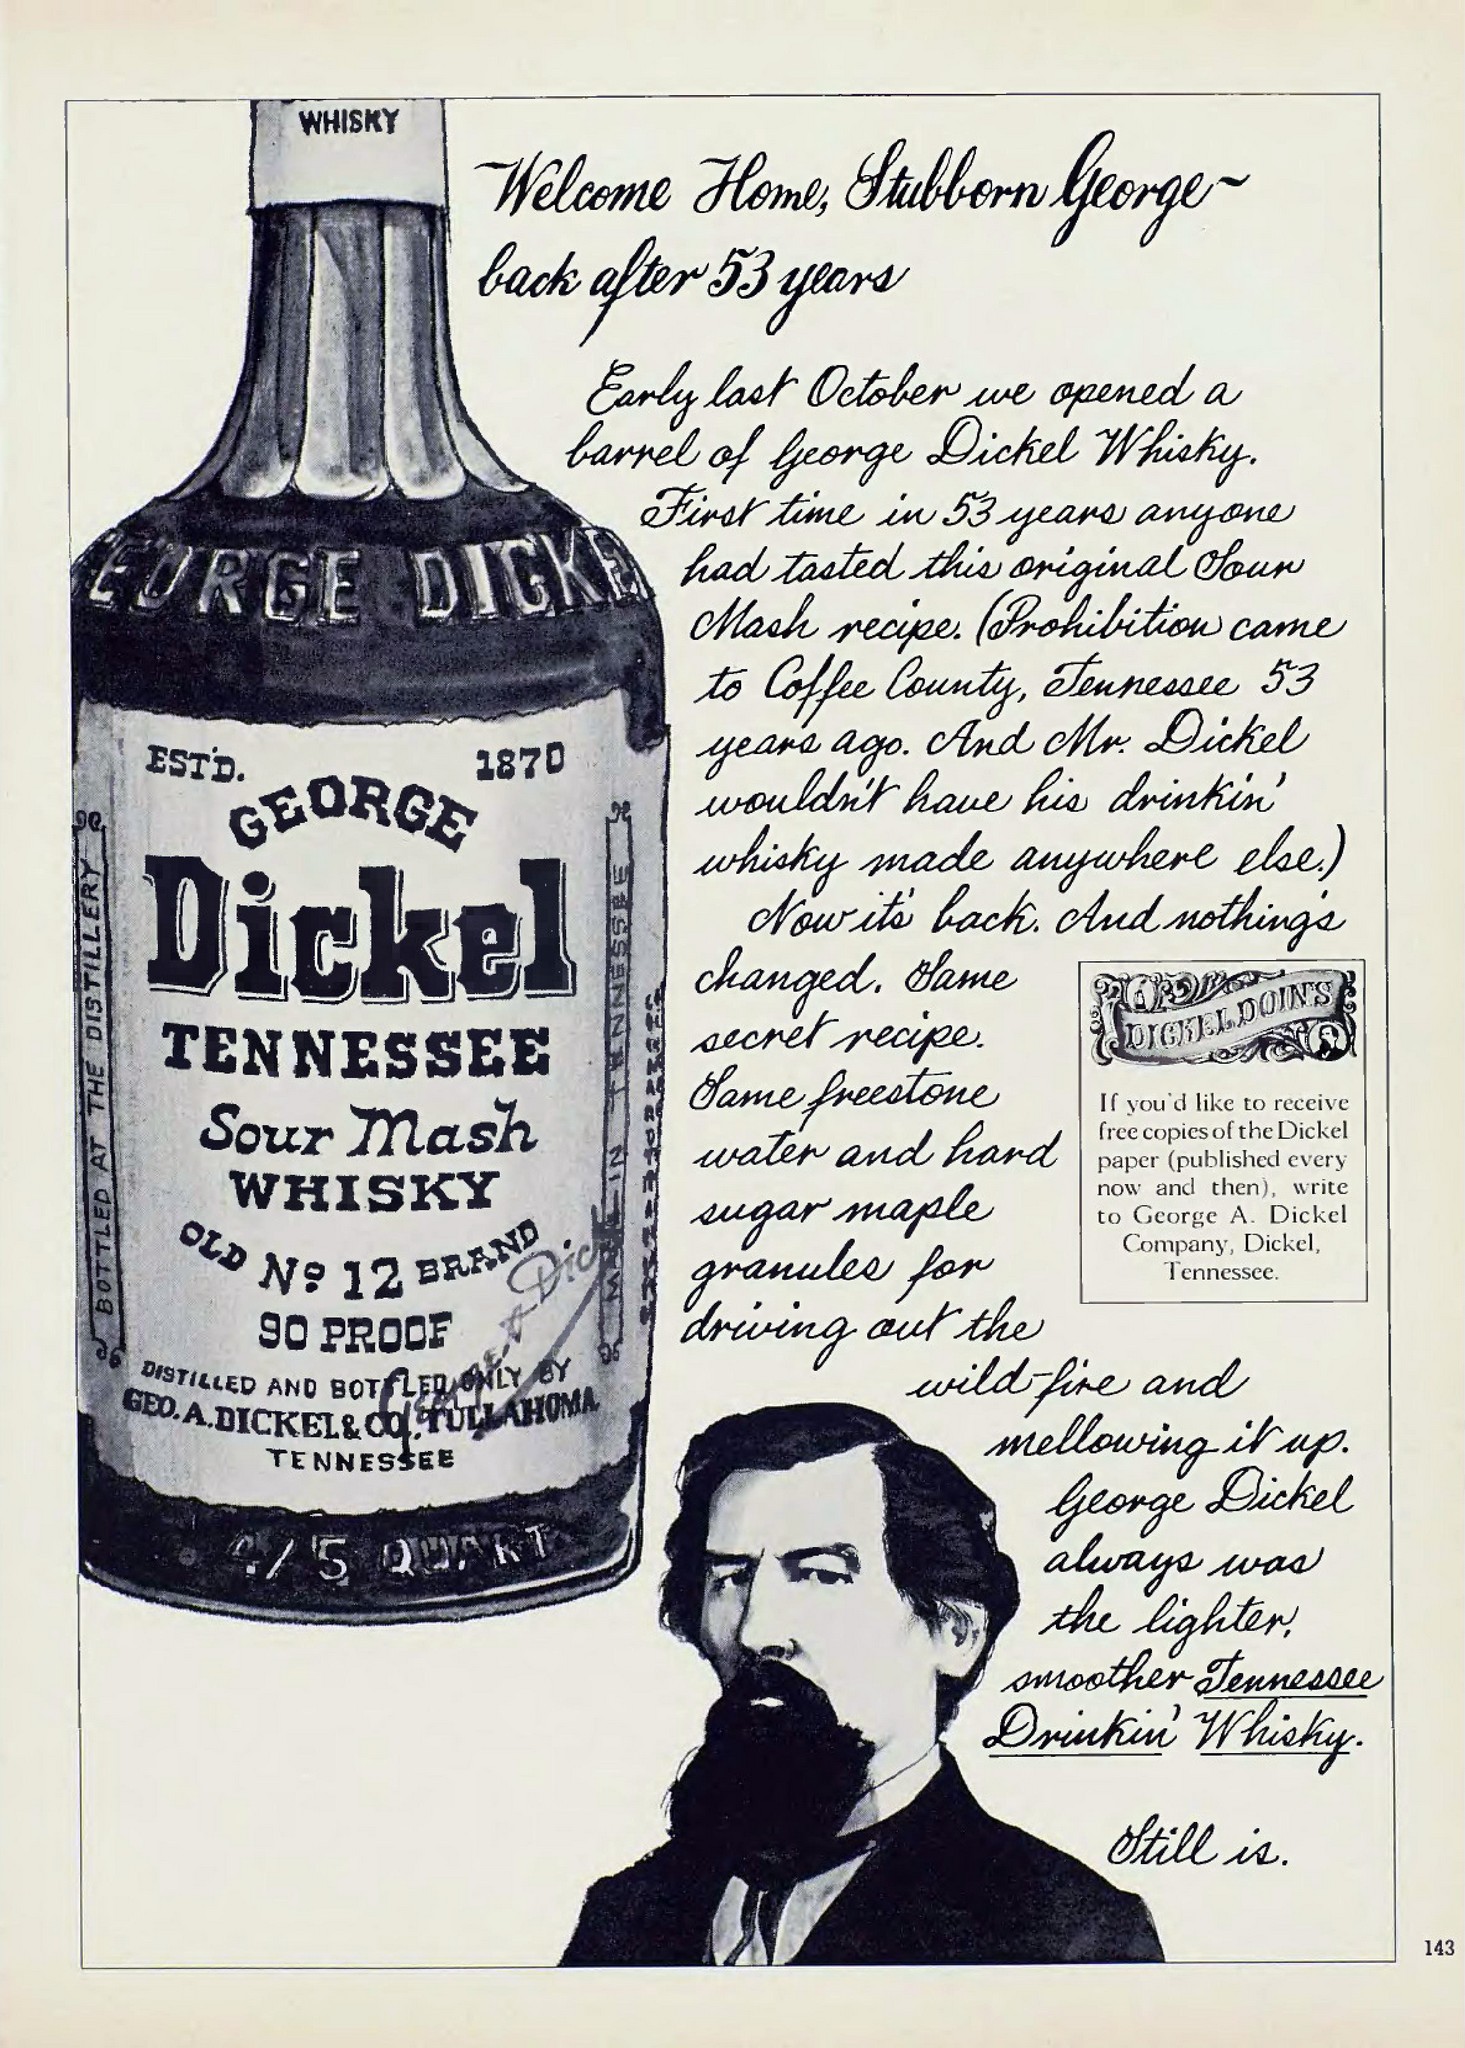 WHISKY
Welcome Home, Stubborn George~
back after 53 years
Early last October we opened a
barrel of George Dickel Whisky.
First time in 53 years anyone
had tasted this original Sour
Mash recipe. (Prohibition came
to Coffee County, Tennessee 53
years ago. And Mr. Dickel
wouldn't have his drinkin'
whisky made anywhere else.)
Now it's back. And nothing's
changed. Same
secret recipe.
Same freestone
water and hard
sugar maple
granules for
driving out the
wild-fire and
mellowing it up.
George Dickel
always was
the lighter,
smoother Tennessee
Drinkin' Whisky.
Still is.
DICKEL DOIN'S
If you'd like to receive
free copies of the Dickel
paper (published every
now and then), write
to George A. Dickel
Company, Dickel,
Tennessee.
EORGE DICKE
EST'D. 1870
GEORGE
Dickel
TENNESSEE
Sour Mash
WHISKY
OLD No 12 BRAND
90 PROOF
DISTILLED AND BOTTLED ONLY BY
GEO. A. DICKEL & CO., TULLAHOMA
TENNESSEE
BOTTLED AT THE DISTILLERY
4/5 QUART
143